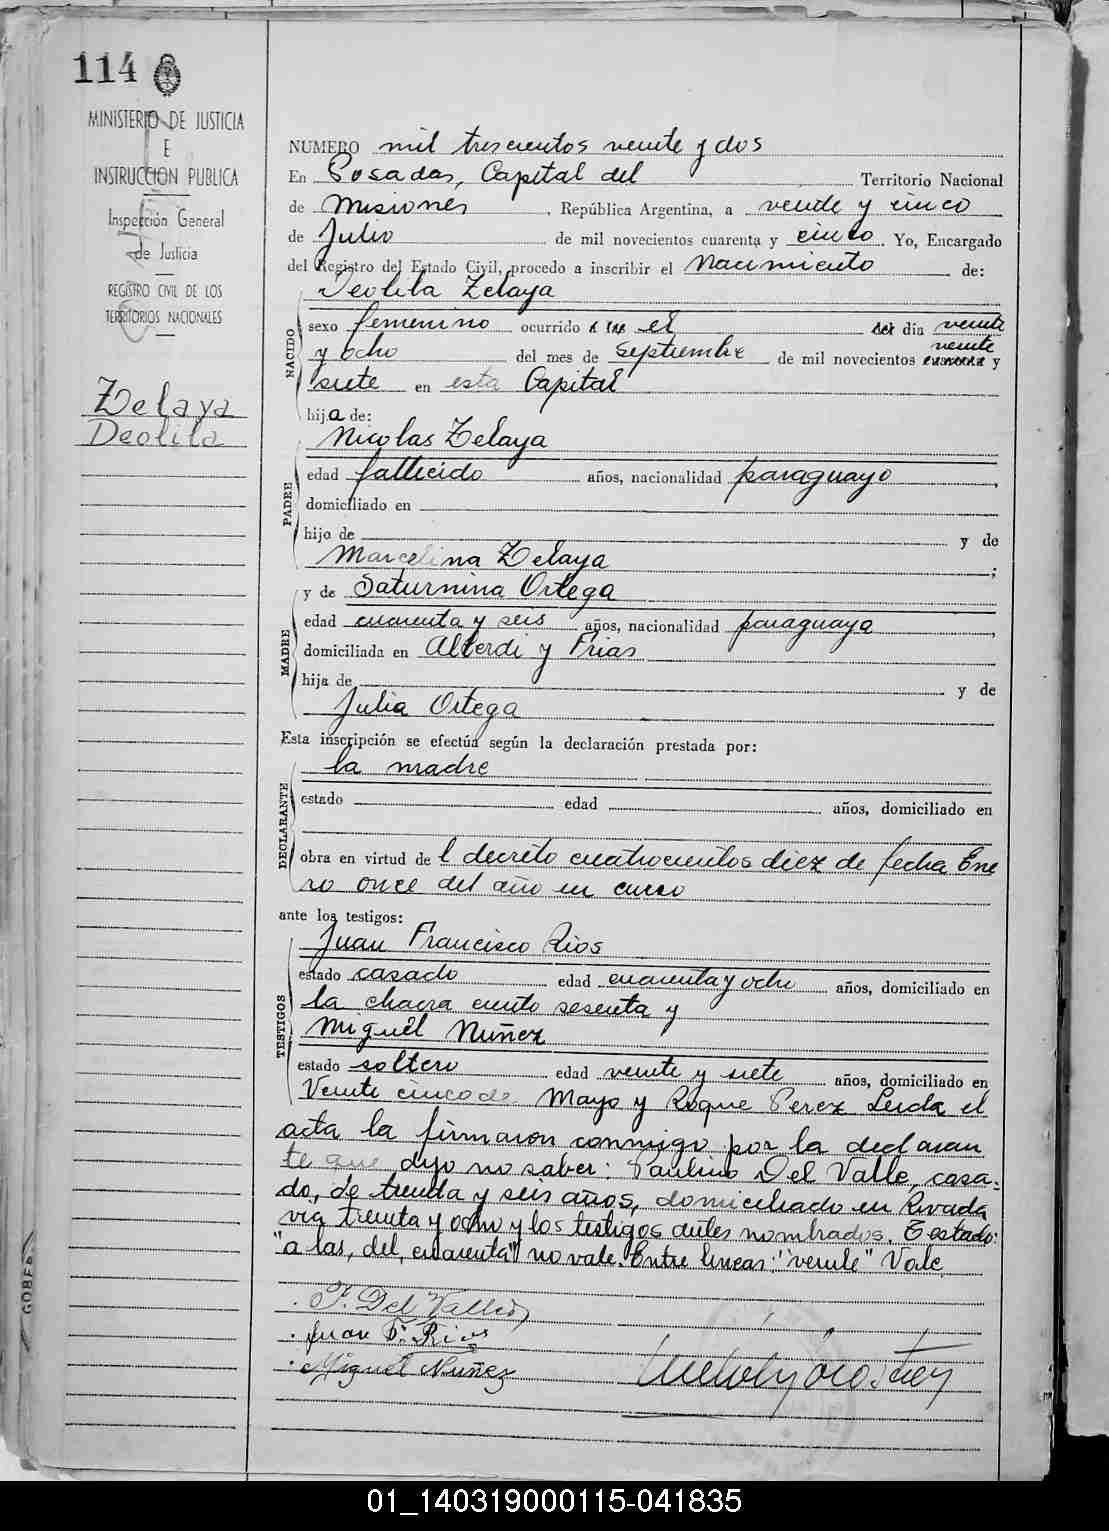 114
MINISTERIO DE JUSTICIA
E
INSTRUCCION PUBLICA
Inspección General
de Justicia
REGISTRO CIVIL DE LOS
TERRITORIOS NACIONALES
Zelaya
Deolila
NUMERO mil trescientos veinte y dos
En Posadas, Capital del Territorio Nacional
de Misiones, República Argentina, a veinte y cinco
de Julio de mil novecientos cuarenta y cinco. Yo, Encargado
del Registro del Estado Civil, procedo a inscribir el Nacimiento de:
Deolila Zelaya
NACIDO
sexo femenino ocurrido a las el del día veinte
y ocho del mes de Septiembre de mil novecientos cuarenta veinte y
siete en esta Capital
hija de:
Nicolas Zelaya
PADRE
edad fallecido años, nacionalidad paraguayo,
domiciliado en
hijo de y de
Marcelina Zelaya;
MADRE
y de Saturnina Ortega
edad cuarenta y seis años, nacionalidad paraguaya,
domiciliada en Alberdi y Frias
hija de y de
Julia Ortega
Esta inscripción se efectúa según la declaración prestada por:
la madre
DECLARANTE
estado edad años, domiciliado en
obra en virtud del decreto cuatrocientos diez de fecha Ene
ro once del año en curso
ante los testigos:
Juan Francisco Rios
TESTIGOS
estado casado edad cuarenta y ocho años, domiciliado en
la chacra ciento sesenta y
Miguel Nuñez
estado soltero edad veinte y siete años, domiciliado en
Veinte cinco de Mayo y Roque Perez Leida el
acta la firmaron conmigo por la declaran
te que dijo no saber: Paulino Del Valle, casa-
do, de treinta y seis años, domiciliado en Rivada
via treinta y ocho y los testigos antes nombrados. Testado:
"a las, del, cuarenta" no vale. Entre lineas: "veinte" Vale
P. Del Valle
Juan F. Rios
Miguel Nuñez
GOBER
01_140319000115-041835